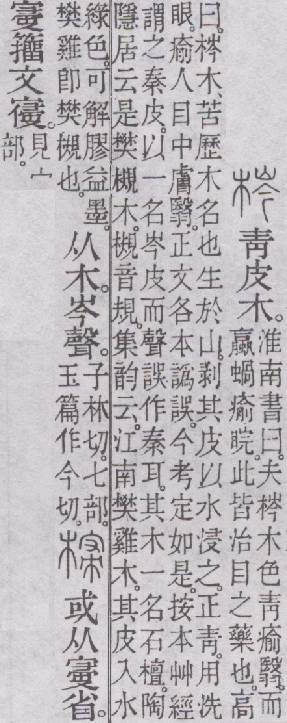 梣 青皮木。
淮南書曰。夫梣木色青瘉翳。而
蠃蝸瘉睆。此皆治目之藥也。高
曰。梣木、苦歷木名也。生於山。剥其皮以水浸之。正青。用洗
眼。瘉人目中膚翳。正文各本譌誤。今考定如是。按本艸經
謂之秦皮。以一名岑皮而聲誤作秦耳。其木一名石檀。陶
隱居云。是樊槻木。槻音規。集韵云。江南樊雞木。其皮入水
綠色。可解膠益墨。
樊雞卽樊槻也。
从木。岑聲。
子林切。七部。
玉篇作今切。
或从𡪢省。
𡪢籒文㝲。
見宀
部。